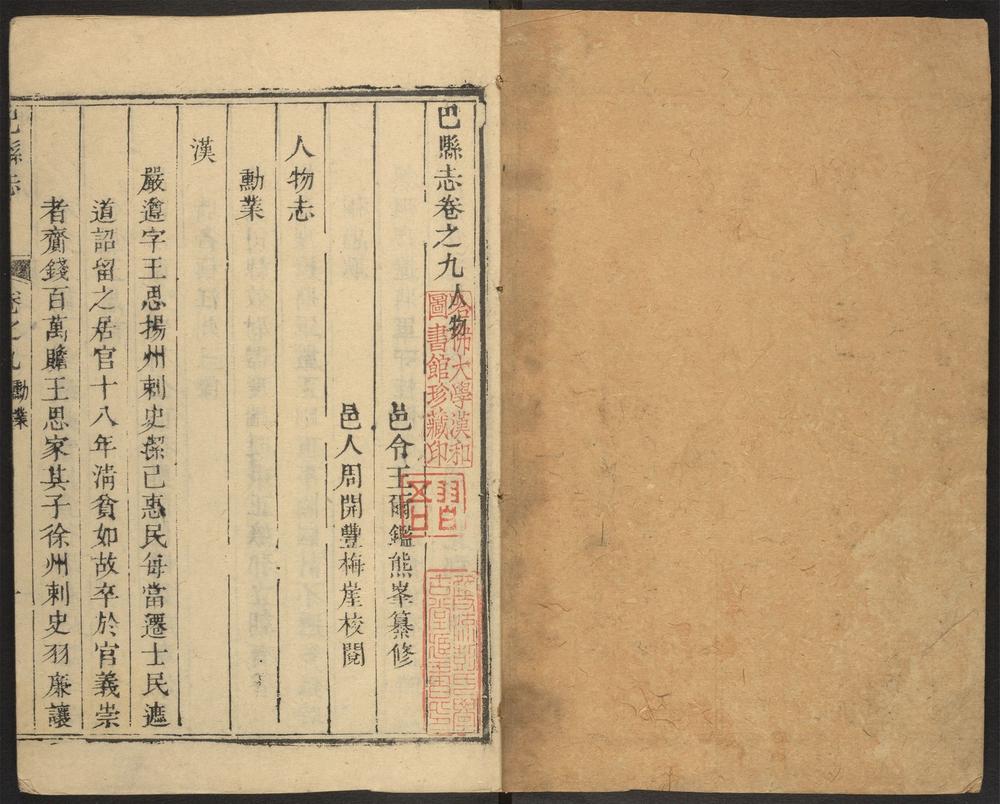 巴縣志卷之九人物
邑令王爾鑑熊峯纂修
邑人周開豐梅崖校閱
人物志
勳業
漢
嚴遵字王思揚州刺史潔己惠民每當遷士民遮
道詔留之居官十八年清貧如故卒於官義崇
者齎錢百萬贍王思家其子徐州刺史羽廉讓
巴縣志
卷之九
勳業
哈佛大學漢和
圖書館珍藏印